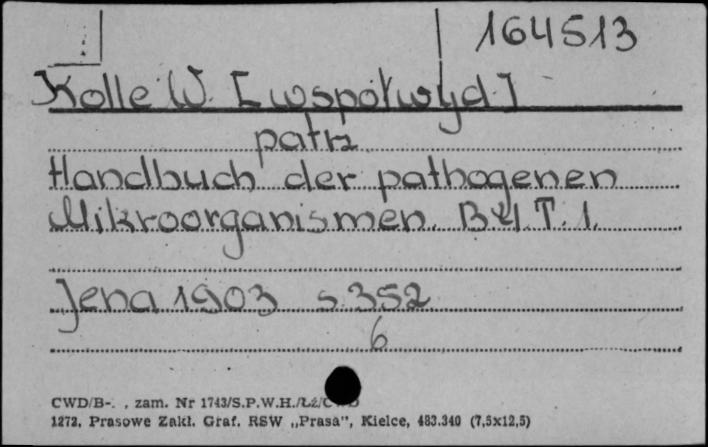 164513
Kolle W. [współwyd]
patrz
Handbuch der pathogenen
Mikroorganismen. T. 1.
Jena 1903 s. 352
6
CWD/B-. , zam. Nr 1743/S.P.W.H./Łż/
1272, Prasowe Zakł. Graf. RSW „Prasa", Kielce, 483.340 (7,5x12,5)